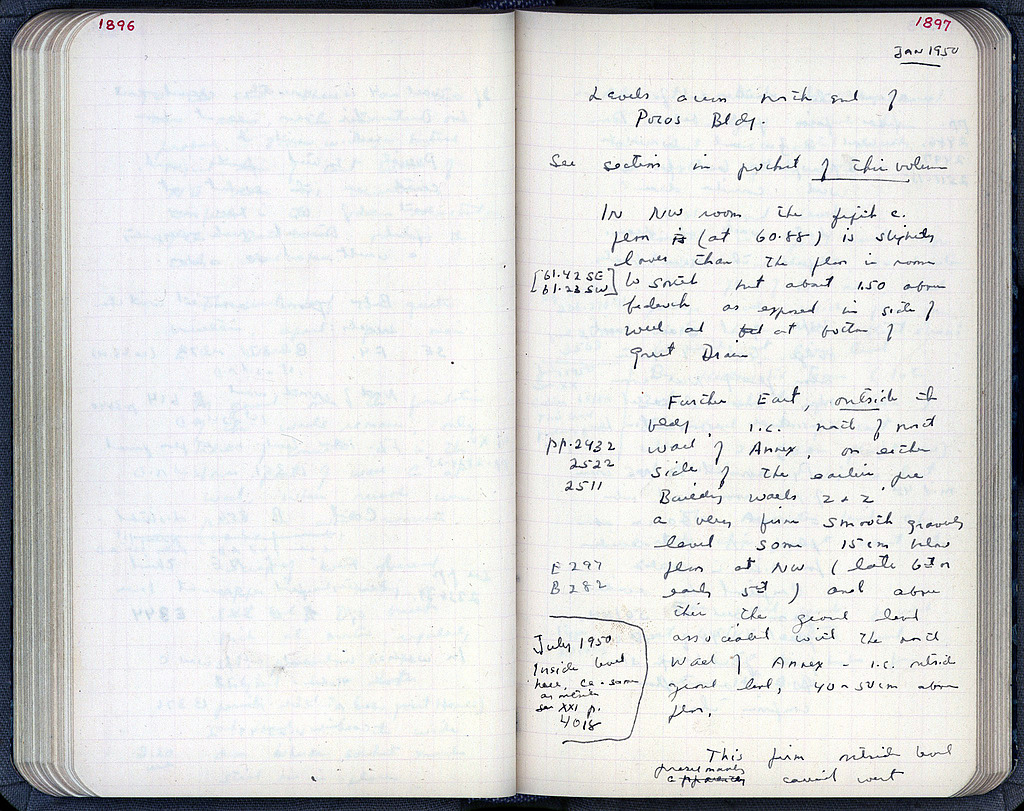 1896
1897
JAN 1950
Levels across north end of
Poros Bldg.
See section in pocket of this volume
In NW room the fifth c.
floor is (at 60.88) is slightly
lower than the floor in room
[61.42 SE
61.23 SW]
to south, but about 1.50 above
bedrock as exposed in side of
well and at bottom of
Great Drain
Further East, outside the
bldg, i.e. north of north
pp. 2432
2522
2511
wall of Annex, on either
side of the earlier pre
Building walls z & z'
a very firm smooth gravelly
level some 15 cm below
E 297
B 282
floor at NW (late 6th or
early 5th) and above
this the ground level
associated with the north
wall of Annex - i.e. outside
ground level, 40 - 50 cm above
floor.
July 1950
Inside level
here, ca. same
as outside
see XXI p.
4018
This firm outside level
presumably
apparently carried west